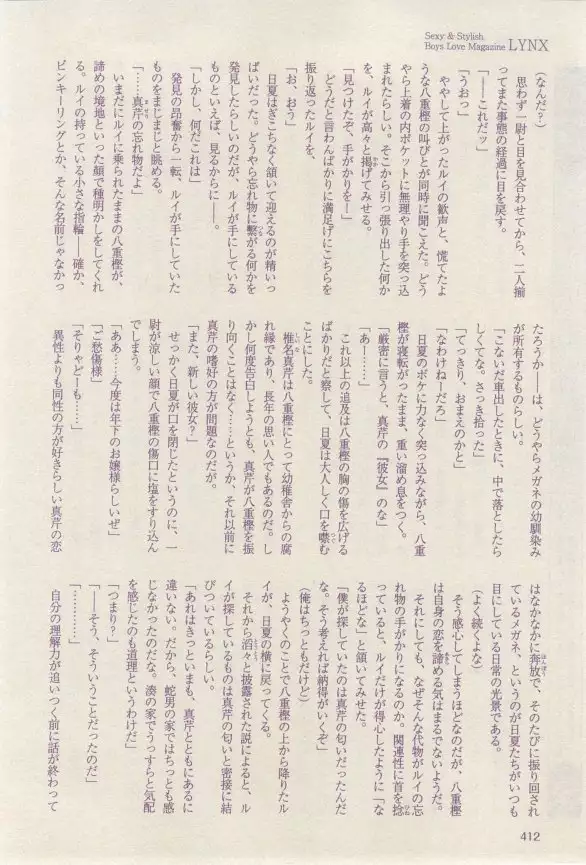 Sexy & Stylish.
Boys Love Magazine LYNX
(なんだ?)
思わず一尉と目を見合わせてから、二人揃
ってまた事態の経過に目を戻す。
「――これだッ」
「うおっ」
ややして上がったルイの歓声と、慌てたよ
うな八重樫の叫びとが同時に聞こえた。どう
やら上着の内ポケットに無理やり手を突っ込
まれたらしい。そこから引っ張り出した何か
を、ルイが高々と掲げてみせる。
「見つけたぞ、手がかりを―」
どうだと言わんばかりに満足げにこちらを
振り返ったルイを、
「お、おう」
日夏はぎこちなく頷いて迎えるのが精いっ
ぱいだった。どうやら忘れ物に繋がる何かを
発見したらしいのだが、ルイが手にしている
ものといえば、見るからに――。
「しかし、何だこれは」
発見の昂奮から一転、ルイが手にしていた
ものをまじまじと眺める。
「……真芹の忘れ物だよ」
いまだにルイに乗られたままの八重樫が、
諦めの境地といった顔で種明かしをしてくれ
る。ルイの持っている小さな指輪――確か、
ピンキーリングとか、そんな名前じゃなかっ
たろうか――は、どうやらメガネの幼馴染み
が所有するものらしい。
「こないだ車出したときに、中で落としたら
しくてな。さっき拾った」
「てっきり、おまえのかと」
「なわけねーだろ」
日夏のボケに力なく突っ込みながら、八重
樫が寝転がったまま、重い溜め息をつく。
「厳密に言うと、真芹の『彼女』のな」
「あー……」
これ以上の追及は八重樫の胸の傷を広げる
ばかりだと察して、日夏は大人しく口を噤む
ことにした。
椎名真芹は八重樫にとって幼稚舎からの腐
れ縁であり、長年の思い人でもあるのだ。し
かし何度告白しようとも、真芹が八重樫を振
り向くことはなく……というか、それ以前に
真芹の嗜好の方が問題なのだが。
「また、新しい彼女?」
せっかく日夏が口を閉じたというのに、一
尉が涼しい顔で八重樫の傷口に塩をすり込ん
でしまう。
「ああ……今度は年下のお嬢様らしいぜ」
「ご愁傷様」
「そりゃどーも……」
異性よりも同性の方が好きらしい真芹の恋
はなかなかに奔放で、そのたびに振り回され
ているメガネ、というのが日夏たちがいつも
目にしている日常の光景である。
(よく続くよな)
そう感心してしまうほどなのだが、八重樫
は自身の恋を諦める気はまるでないようだ。
それにしても、なぜそんな代物がルイの忘
れ物の手がかりになるのか。関連性に首を捻
っていると、ルイだけが得心したように「な
るほどな」と頷いてみせた。
「僕が探していたのは真芹の匂いだったんだ
な。そう考えれば納得がいくぞ」
(俺はちっともだけど)
ようやくのことで八重樫の上から降りたル
イが、日夏の横に戻ってくる。
それから滔々と披露された説によると、ル
イが探しているものは真芹の匂いと密接に結
びついているらしい。
「あれはきっといまも、真芹とともにあるに
違いない。だから、蛇男の家ではちっとも感
じなかったのだな。湊の家でうっすらと気配
を感じたのも道理というわけだ」
「つまり?」
「――そう、そういうことだったのだ」
「…………」
自分の理解力が追いつく前に話が終わって
412